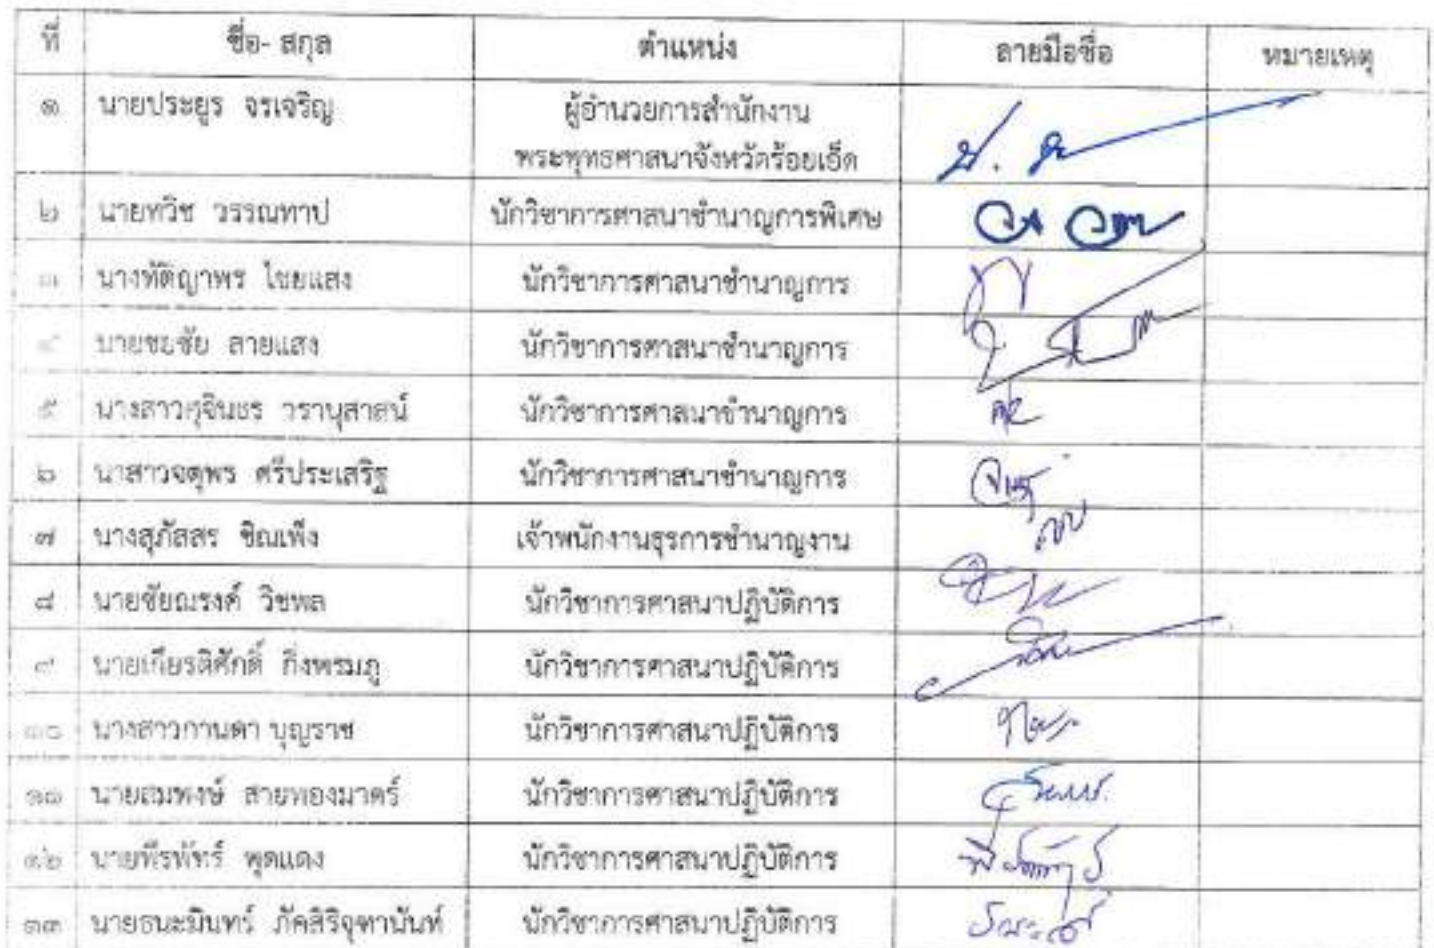 ที่ ชื่อ- สกุล ตำแหน่ง ลายมือชื่อ หมายเหตุ
๑ นายประยูร จรเจริญ ผู้อำนวยการสำนักงาน
พระพุทธศาสนาจังหวัดร้อยเอ็ด
๒ นายทวิช วรรณทาป นักวิชาการศาสนาชำนาญการพิเศษ
๓ นางทัติญาพร ไชยแสง นักวิชาการศาสนาชำนาญการ
๔ นายชยชัย สายแสง นักวิชาการศาสนาชำนาญการ
๕ นางสาวศุจินธร วรานุสาสน์ นักวิชาการศาสนาชำนาญการ
๖ นาสาวจตุพร ศรีประเสริฐ นักวิชาการศาสนาชำนาญการ
๗ นางสุภัสสร ชิณเพ็ง เจ้าพนักงานธุรการชำนาญงาน
๘ นายชัยณรงค์ วิชพล นักวิชาการศาสนาปฏิบัติการ
๙ นายเกียรติศักดิ์ กิ่งพรมภู นักวิชาการศาสนาปฏิบัติการ
๑๐ นางสาวกานดา บุญราช นักวิชาการศาสนาปฏิบัติการ
๑๑ นายสมพงษ์ สายทองมาตร์ นักวิชาการศาสนาปฏิบัติการ
๑๒ นายพีรพัทร์ พุดแดง นักวิชาการศาสนาปฏิบัติการ
๑๓ นายธนะมินทร์ ภัคสิริจุฑานันท์ นักวิชาการศาสนาปฏิบัติการ